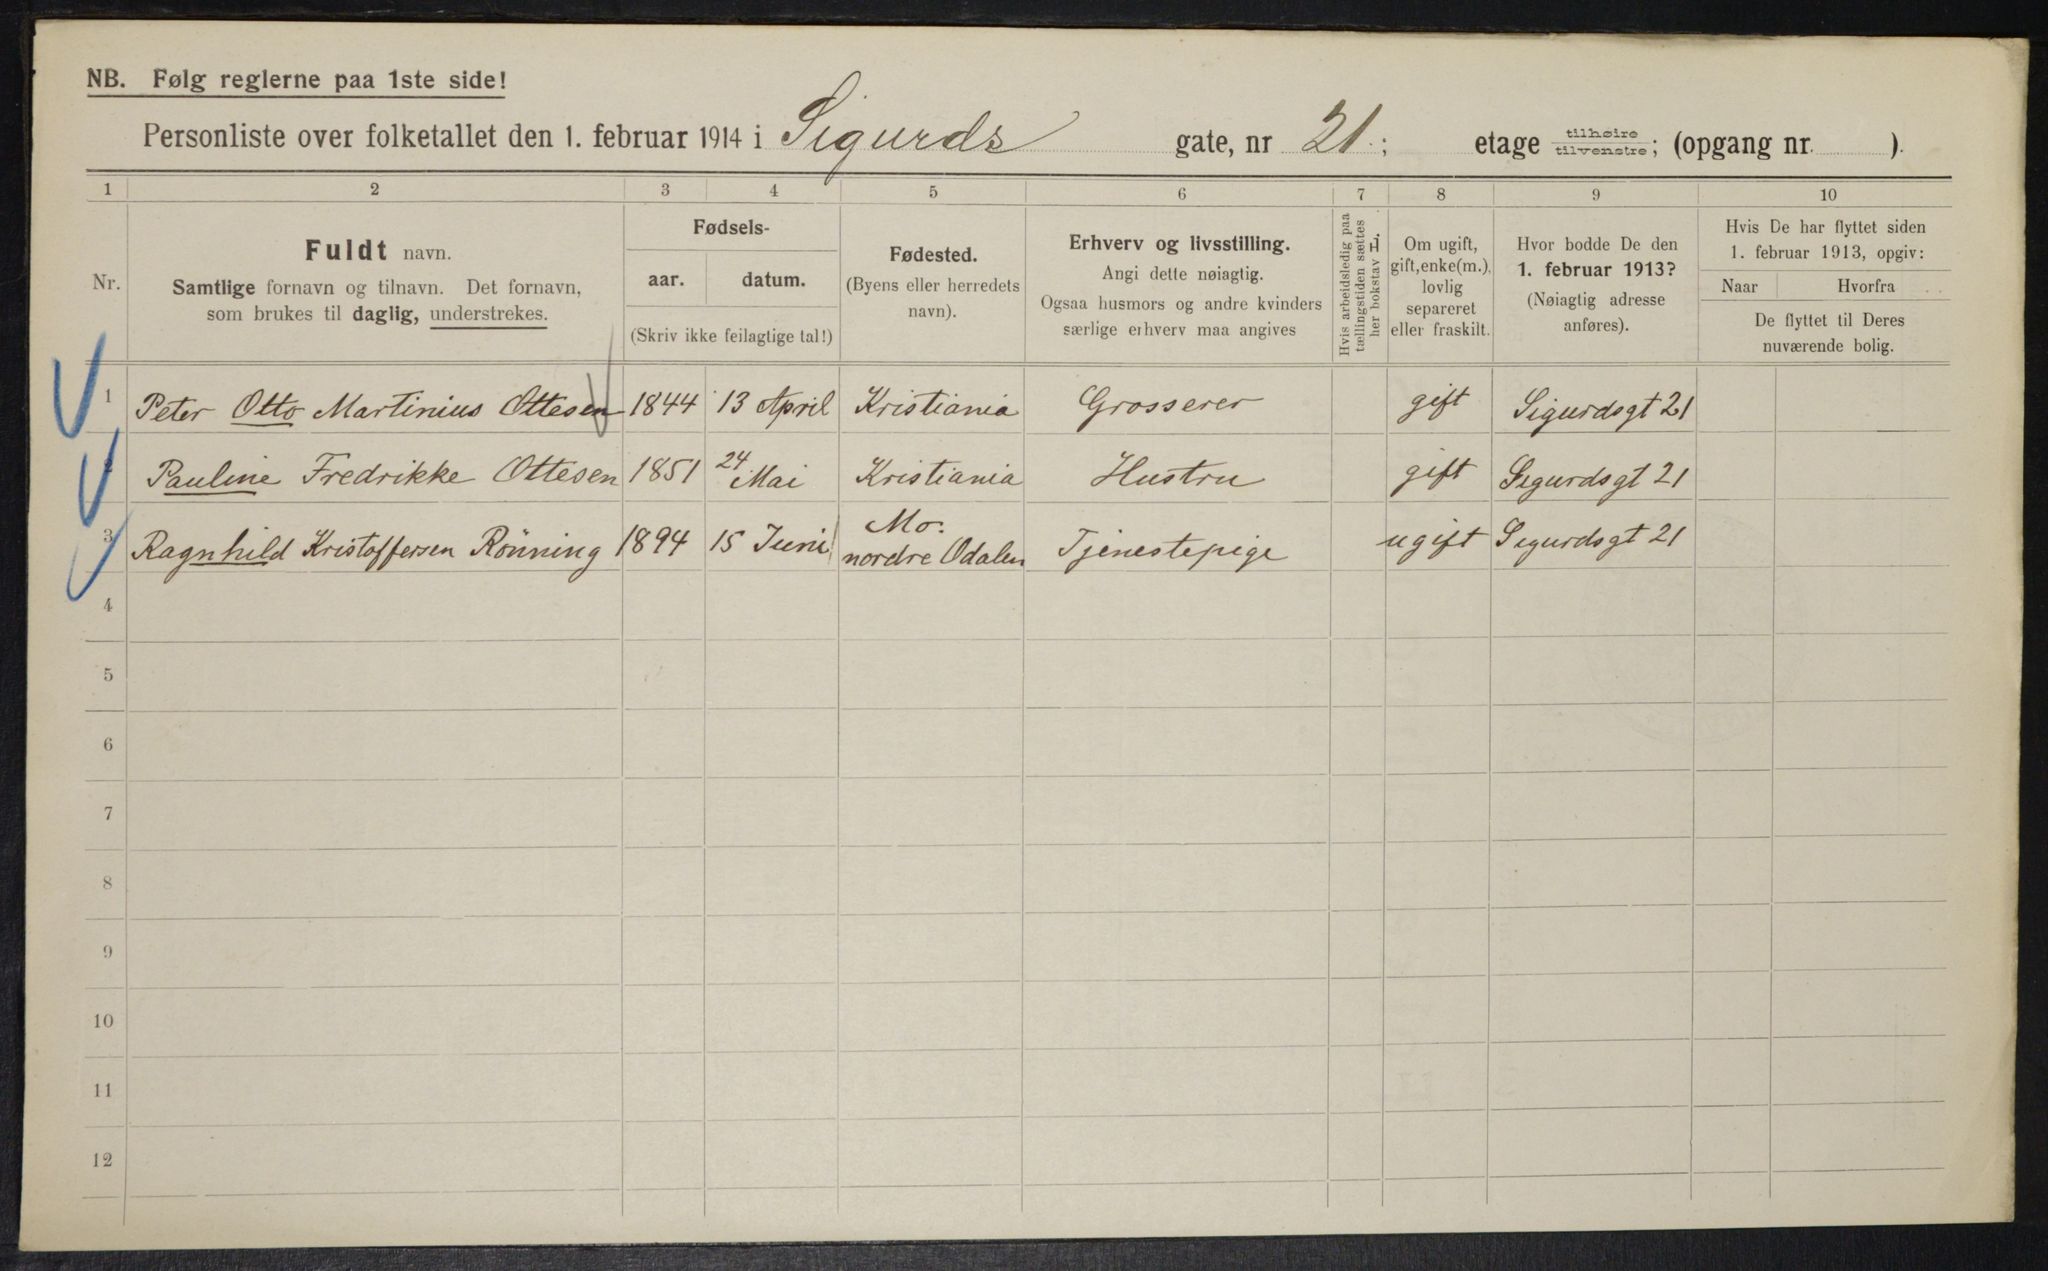 NB. Følg reglerne paa 1ste side!
Personliste over folketallet den 1. februar 1914 i Sigurds gate, nr 21.; etage tilhøire tilvenstre; (opgang nr. ).
1 2 3 4 5 6 7 8 9 10
Nr.
Fuldt navn.
Samtlige fornavn og tilnavn. Det fornavn,
som brukes til daglig, understrekes.
Fødsels-
aar. datum.
(Skriv ikke feilagtige tal!)
Fødested.
(Byens eller herredets
navn).
Erhverv og livsstilling.
Angi dette nøiagtig.
Ogsaa husmors og andre kvinders
særlige erhverv maa angives
Hvis arbeidsledig paa
tællingstiden sættes
her bokstav L.
Om ugift,
gift, enke(m.),
lovlig
separeret
eller fraskilt.
Hvor bodde De den
1. februar 1913?
(Nøiagtig adresse
anføres).
Hvis De har flyttet siden
1. februar 1913, opgiv:
Naar Hvorfra
De flyttet til Deres
nuværende bolig.
1 Peter Otto Martinius Ottesen 1844 13 April Kristiania Grosserer gift Sigurdsgt 21
2 Pauline Fredrikke Ottesen 1851 24 Mai Kristiania Hustru gift Sigurdsgt 21
3 Ragnhild Kristoffersen Rönning 1894 15 Juni Mo. nordre Odalen Tjenestepige ugift Sigurdsgt 21
4
5
6
7
8
9
10
11
12